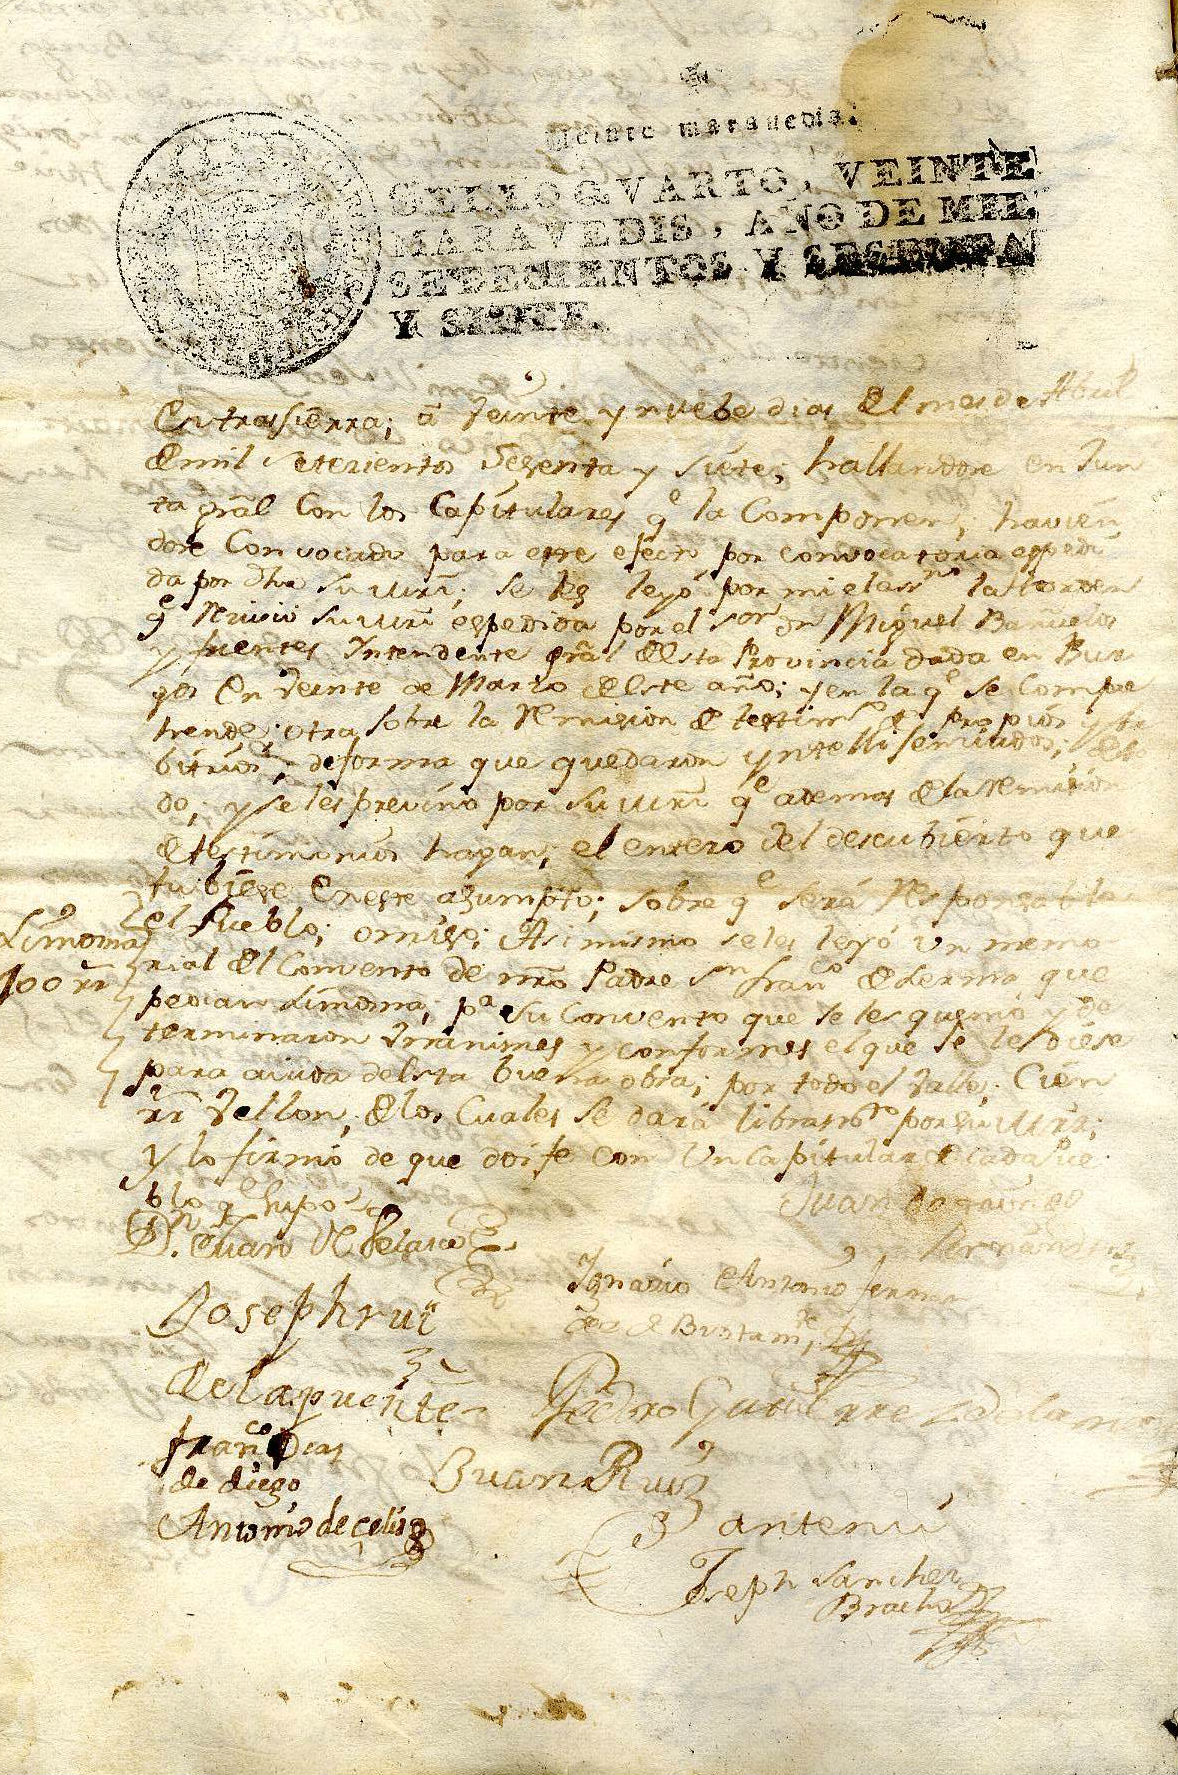 Veinte maravedis.
SELLO QVARTO, VEINTE
MARAVEDIS, AÑO DE MIL
SETECIENTOS Y SESENTA
Y SIETE.
En trassierra; a Veinte y nuebe dias del mes de Abril
de mil Setecientos Sesenta y siete; hallandose en Jun
ta gral Con los Capitulares q la Componen; havien
dose Convocado para este efecto por convocatoria espedi
da por dha su mrd; se les leyó por mi el la horden
q Recivio su mrd espedida por el Sor dn Miguel Bañuelos
y fuentes Yntendente gral desta Provincia dada en Bur
gos en Veinte de Marzo deeste año; y en la q se Compre
hende; otra sobre la Remision de testim de propios y Ar
bitrios; de forma que quedaron Yntelli
do; y se les previno por su mrd q ademas de la Remision
de testimonios hagan; el entero del descubierto que
tubiese en este asumpto; sobre q será Responsable
el Pueblo; omiso; Asi mismo se les leyó un memo
Limosna
100 rr
rial del Convento de nro Padre Sn Franco de Lerma que
pedian Limosna; pa su Convento que se les quemó y de
terminaron Unanimes y conformes el que se les diese
para aiuda desta buena obra; por todo el Valle; Cien
rr Vellon; de los Cuales se dará por su mrd;
Y lo firmo de que doi fe con Un Capitular de cada Pue
blo q Supo
Juan
Dn. Juan
Fernandez
Ygnacio Antonio fernan
dez de Bustamte
Joseph rui
z
de la puente
Pedro Gutierrez de la
franco Dias
de diego
Juan Ruiz
Antonio de çelis
antemi
Joseph Sanchez